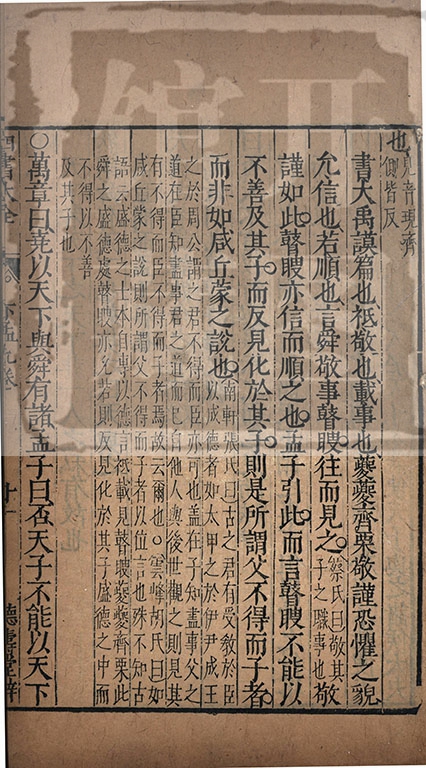 也見音現齊
側皆反
書大禹謨篇也祗敬也載事也夔夔齊栗敬謹恐懼之貌
允信也若順也言舜敬事瞽瞍往而見之蔡氏曰敬其
子之職事也敬
謹如此瞽瞍亦信而順之也孟子引此而言瞽瞍不能以
不善及其子而反見化於其子則是所謂父不得而子者
而非如咸丘蒙之說也南軒張氏曰古之君有受教於臣
以成德者如太甲之於伊尹成王
之於周公謂之君不得而臣亦可也蓋在子知盡事父之
道在臣知盡事君之道而已自他人與後世觀之則見其
有不得而臣不得而子者焉故云爾也○雲峯胡氏曰如
咸丘蒙之說則所謂父不得而子者以位言也殊不知古
語云盛德之士本自專以德言祗載見瞽瞍夔夔齊栗此
舜之盛德處瞽瞍亦允若則反見化於其子盛德之中而
不得以不善
及其子也
○萬章曰堯以天下與舜有諸孟子曰否天子不能以天下
四書大全
下孟九卷
十一